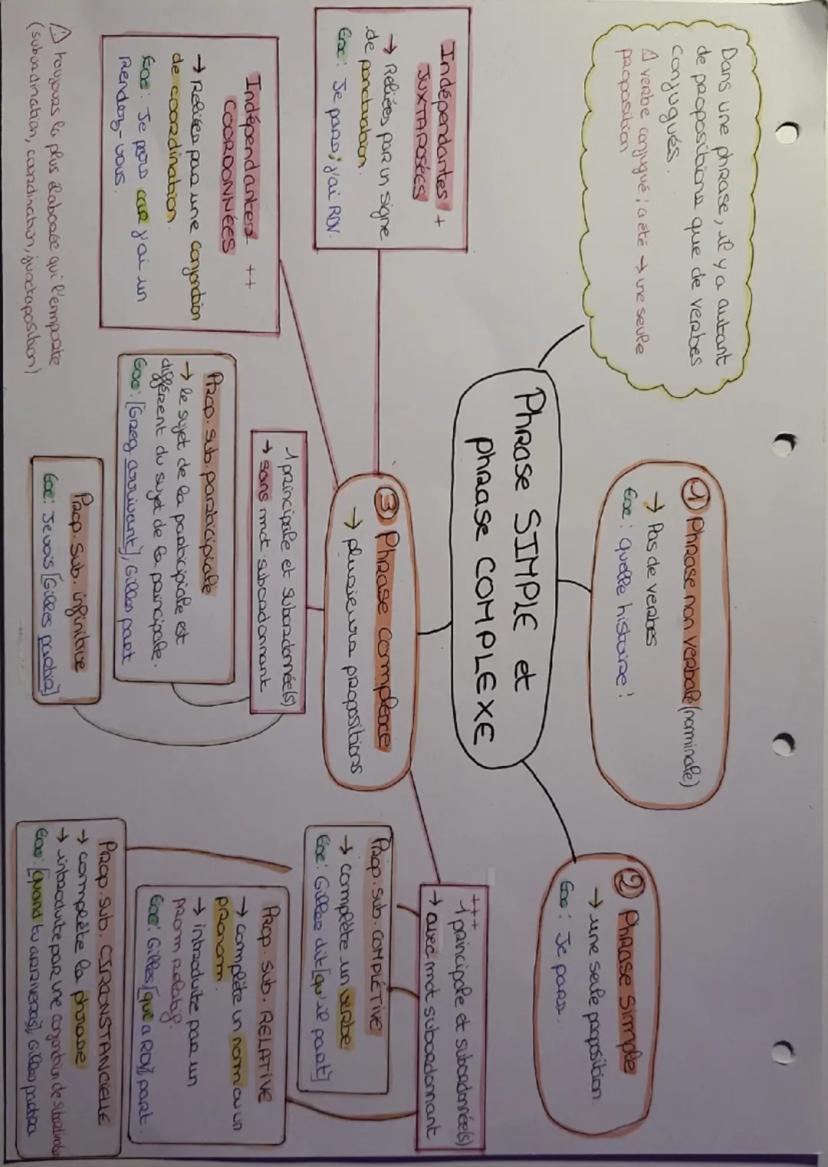 Dans une phrase, il y a autant
de propositions que de verbes
conjugués.
⚠ verbe conjugué : a été → une seule
proposition
Phrase SIMPLE et
phrase COMPLEXE
① Phrase non verbale (nominale)
→ Pas de verbes
Exe : Quelle histoire !
② Phrase simple
→ une seule proposition
Exe : Je pars.
③ Phrase complexe
→ plusieurs propositions
Indépendantes +
JUXTAPOSÉES
→ Reliées par un signe
de ponctuation.
Exe : Je pars ; j'ai RDV.
Indépendantes ++
COORDONNÉES
→ Reliées par une conjonction
de coordination.
Exe : Je pars car j'ai un
rendez-vous.
⚠ toujours la plus élaborée qui l'emporte
(subordination, coordination, juxtaposition)
1 principale et subordonnée(s)
→ sans mot subordonnant
Prop. sub. participiale
→ le sujet de la participiale est
différent du sujet de la principale.
Exe : [Greg arrivant], Gilles part
Prop. sub. infinitive
Exe : Je vois [Gilles partir]
+++
1 principale et subordonnée(s)
→ avec mot subordonnant
Prop. sub. COMPLÉTIVE
→ complète un verbe
Exe : Gilles dit [qu'il part]
Prop. sub. RELATIVE
→ complète un nom ou un
pronom
→ introduite par un
pronom relatif.
Exe : Gilles [qui a RDV] part.
Prop. sub. CIRCONSTANCIELLE
→ complète la phrase
→ introduite par une conjonction de
Exe : [quand tu arriveras], Gilles partira